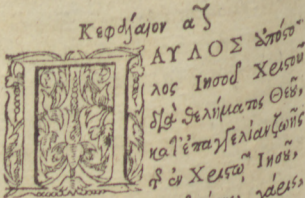 Κεφάλαιον α
ΠΑΥΛΟΣ ἀπόστο-
λος Ιησοῦ Χριστοῦ
διὰ θελήματος Θεοῦ,
κατ' ἐπαγγελίαν ζωῆς
τῆς ἐν Χριστῷ Ἰησοῦ,
χάρις,